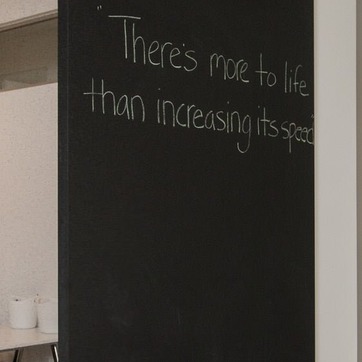 "There's more to life
than increasing its speed"